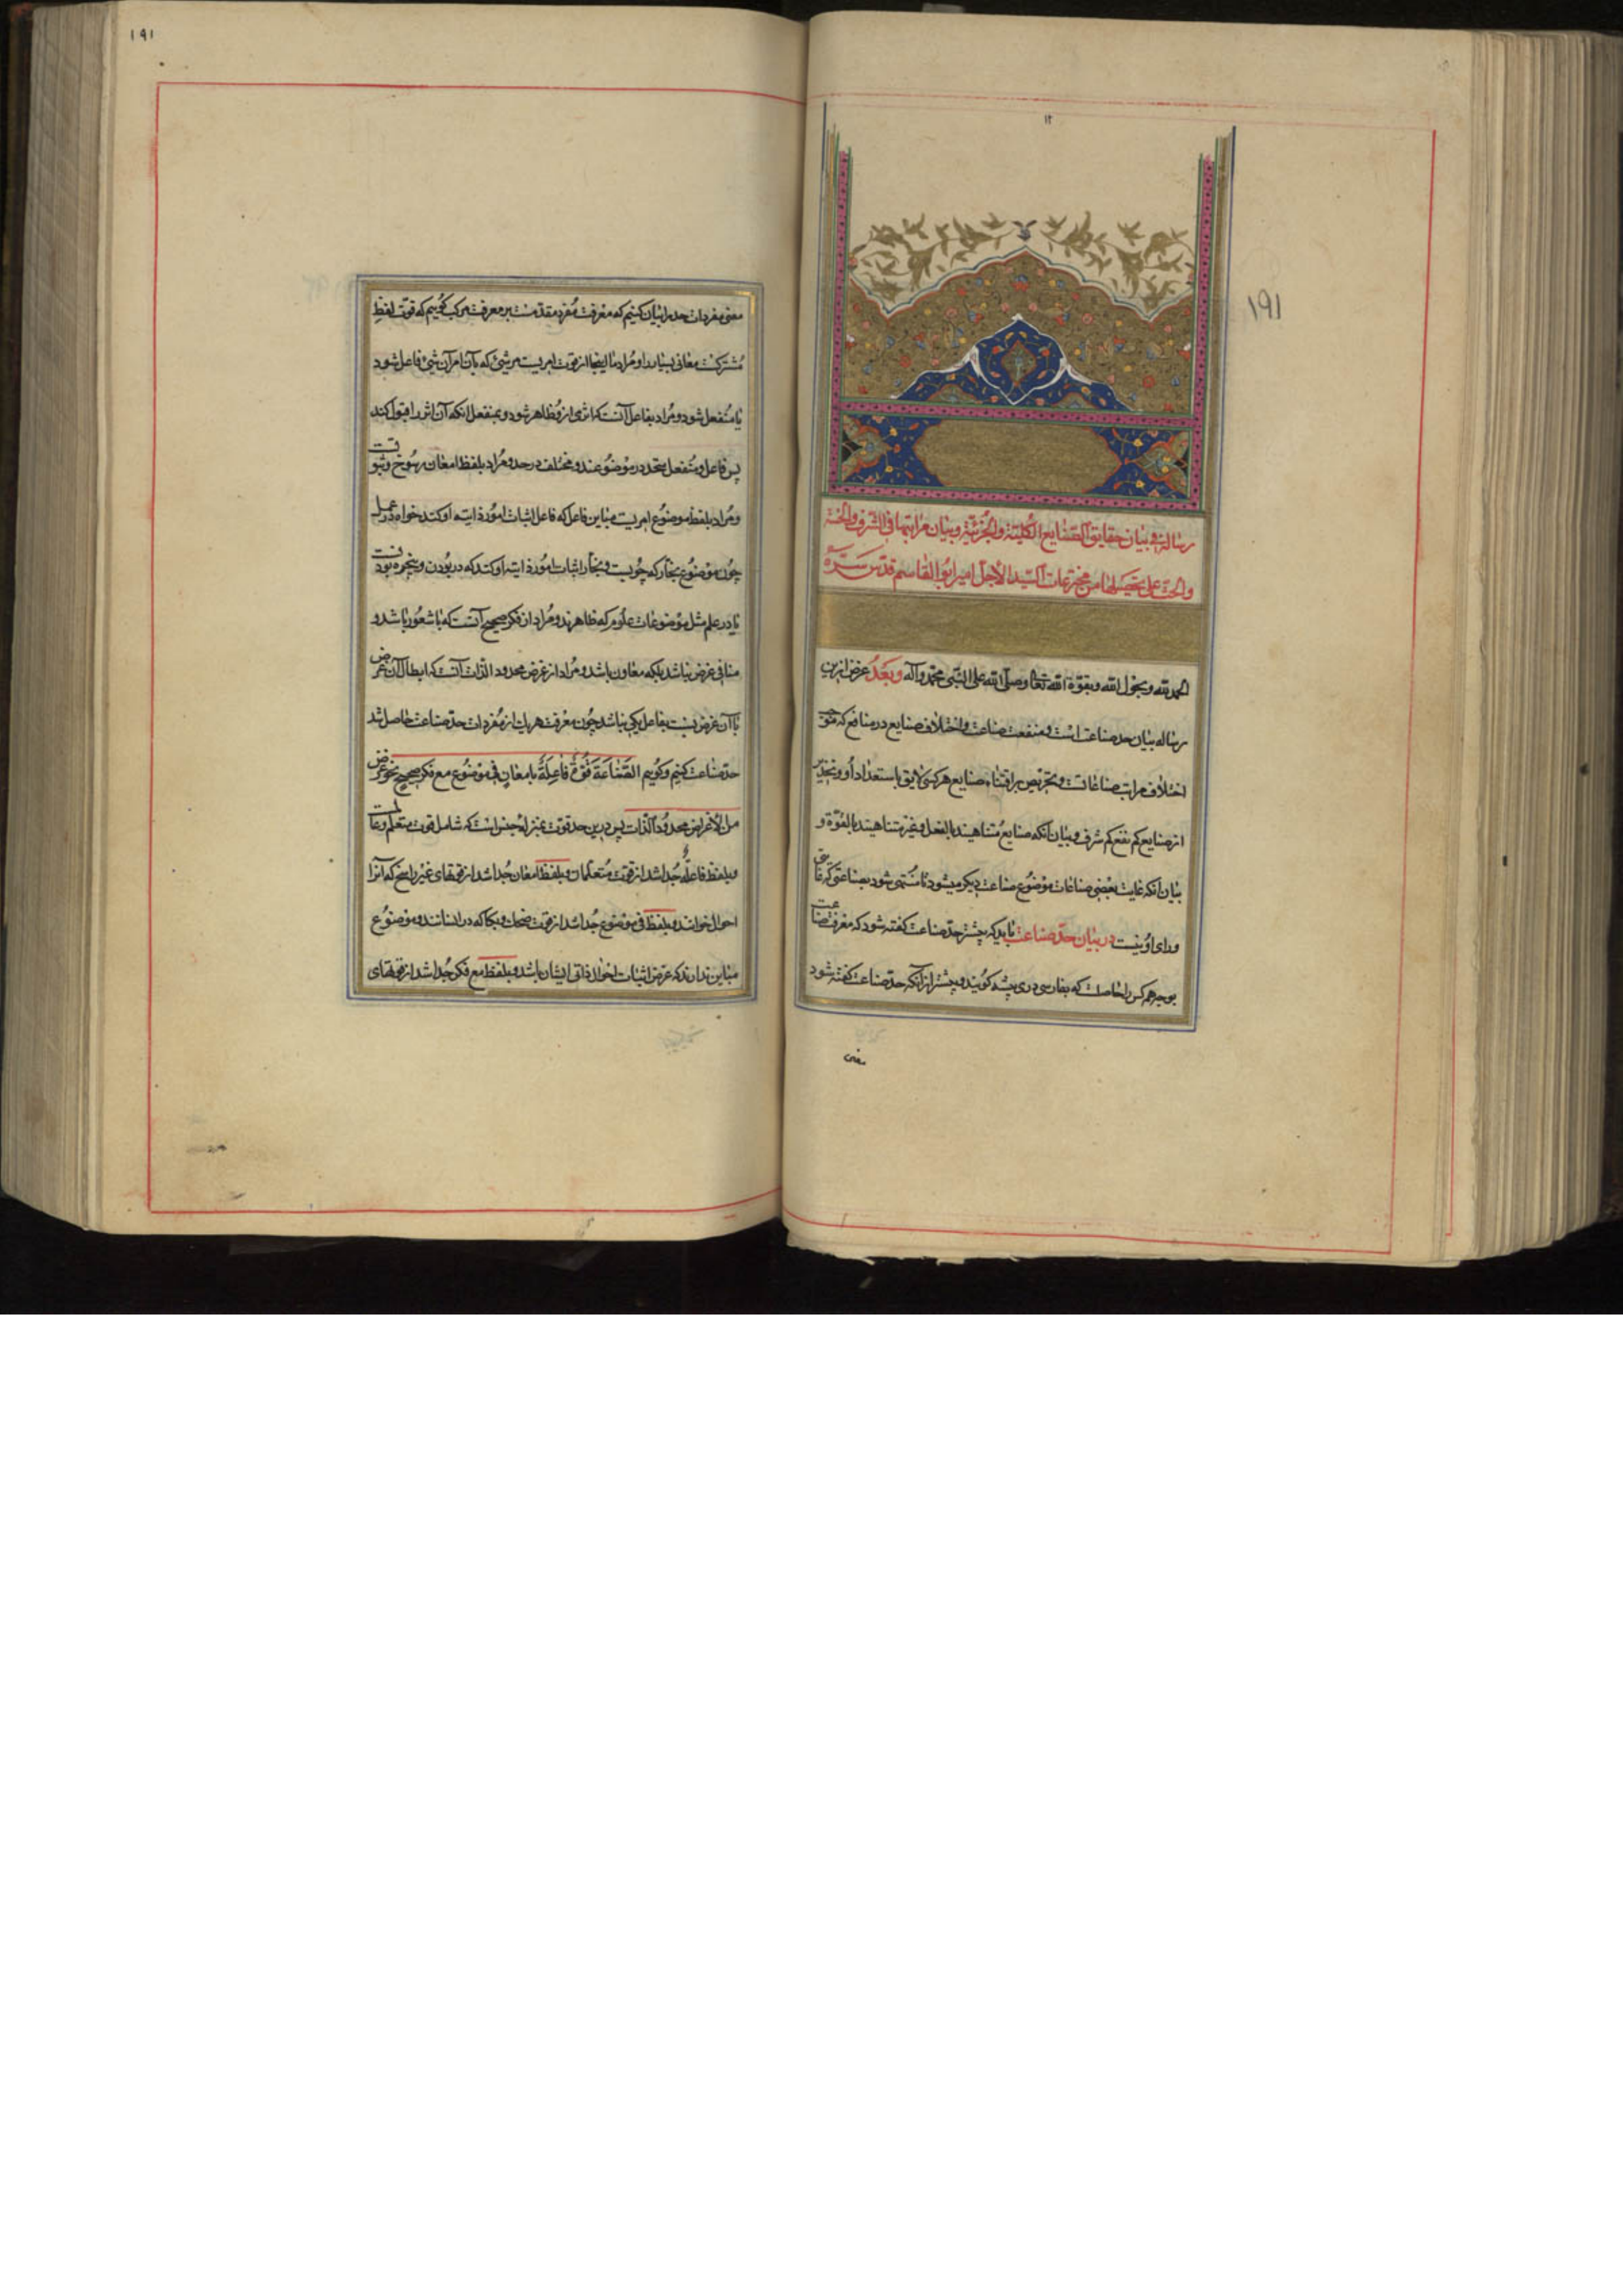 ۱۲
۱۹۱
رسالة فی بیان حقایق الصّنایع الکلیّة والجزئیّة وبیان مراتبها فی الشرف والخسّة
والحثّ علی تحصیلها من مخترعات السّید الاجلّ امیر ابوالقاسم قدّس سرّه
الحمد لله وبحول الله وبقوّة الله تعالی وصلّی الله علی النّبی محمّد وآله وبعد غرض ازین
رساله بیان حد صناعت است و منفعت صناعت و اختلاف صنایع در منافع که موجب
اختلاف مراتب صناعاتست و تحریص بر اقتناء صنایع هر کسی لایق باستعداد او و تحذیر
از صنایع کم نفع کم شرف و بیان آنکه صنایع متناهیند بالفعل و غیر متناهیند بالقوّة و
بیان آنکه غایت بعضی صناعات موضوع صناعت دیگر میشود تا منتهی شود بصناعتی که غایتی
ورای او نیست در بیان حدّ صناعت باید که پیشتر حدّ صناعت گفته شود که معرفت صناعت
بوجه همه کس را حاصلست که بفارسی دری پیشه گویند و پیشتر از آنکه حدّ صناعت گفته شود
معنی
۱۹۱
معنی مفردات حد را بیان کنیم که معرفت مفرد مقدّمست بر معرفت مرکب گوییم که قوّت لفظ
مشترکست معانی بسیار را و مراد ما اینجا از قوت امریست در شیئ که بآن امر آن شیئ فاعل شود
یا منفعل شود و مراد بفاعل آنست که اثری از و ظاهر شود و بمنفعل انکه آن اثر را قبول کند
پس فاعل و منفعل متحد در موضوعند و مختلف در حد و مراد بلفظ امعان رسوخ و ثبوتست
و مراد بلفظ موضوع امریست مباین فاعل که فاعل اثبات امور ذاتیه او کند خواه در عمل
چون موضوع نجار که چوبست و نجار اثبات امور ذاتیه او کند که در بودن و پنجره بودنست
یا در علم مثل موضوعات علوم که ظاهرند و مراد از فکر صحیح آنست که با شعور باشد و
منافی غرض نباشد بلکه معاون باشد و مراد از غرض محدود الذات آنست که ابطال آن غرض
با آن غرض نسبت بفاعل یکی نباشد چون معرفت هر یک از مفردات حدّ صناعت حاصل شد
حدّ صناعت کنیم و گوییم الصّناعة قوّة فاعلة بامعان فی موضوع مع فکر صحیح نحو غرض
من الاغراض محدود الذات پس درین حد قوّت بمنزله جنس است که شامل قوت متعلم و عالمست
و بلفظ فاعله جدا شد از قوت متعلمان و بلفظ امعان جدا شد از قوتهای غیر راسخ که آنرا
احوال خوانند و بلفظ فی موضوع جدا شد از قوت ضحک و بکا که در انسانند و موضوع
مباین ندارند که غرض اثبات احوال ذاتی ایشان باشد و بلفظ مع فکر جدا شد از قوتهای